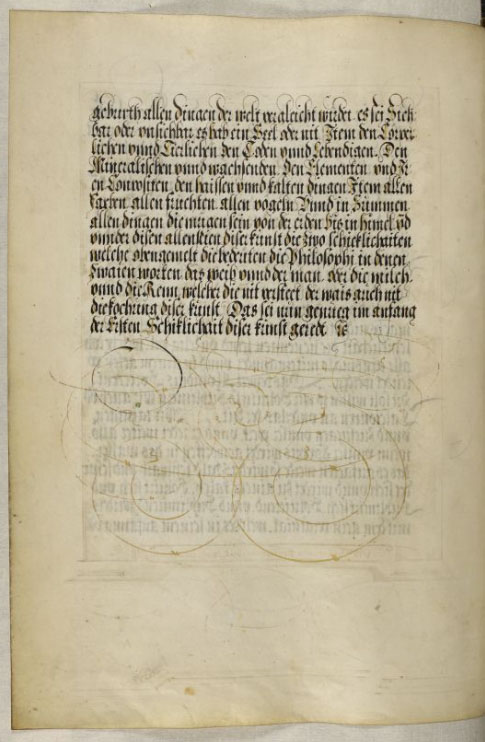 geburth allen dingen der welt vergleicht wirdet es sei Sich
bar oder vnsichbar es hab ein Seel oder nit Item den Cörper
lichen vnnd Tierlichen den Toden vnnd Lebendigen. Den
Mineralischen vnnd wachsenden. Den Elementen vnd Jr
en Composition, den haissen vnnd kalten dingen Item allen
Farben allen fruchten allen vogeln Vnnd in Summen
allen dingen die mugen sein von der erden bis in himel vnd
vnnder disen allen seien diser kunst die zwo schicklichaiten
welche obengemelt die bedeuten die Philosophi in denen
zwaien worten das weib vnnd der man. oder die milch
vnnd die Renn, welcher die nit versteet der wais auch nit
die kochung diser kunst Das sei nun genueg im anfang
der Ersten Schiklichait diser kunst geredt